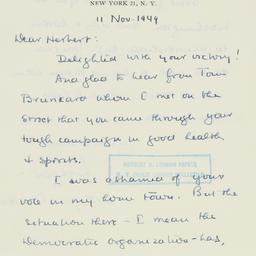 NEW YORK 21, N. Y.
11 Nov. 1949
Dear Herbert:
Delighted with your victory!
And glad to hear from Tom
Brunkard whom I met on the
Street that you came through your
tough campaign in good health
& spirits.
HERBERT H. LEHMAN PAPERS
I was ashamed of your
vote in my home town. But the
situation there - I mean the
Democratic organization - has,